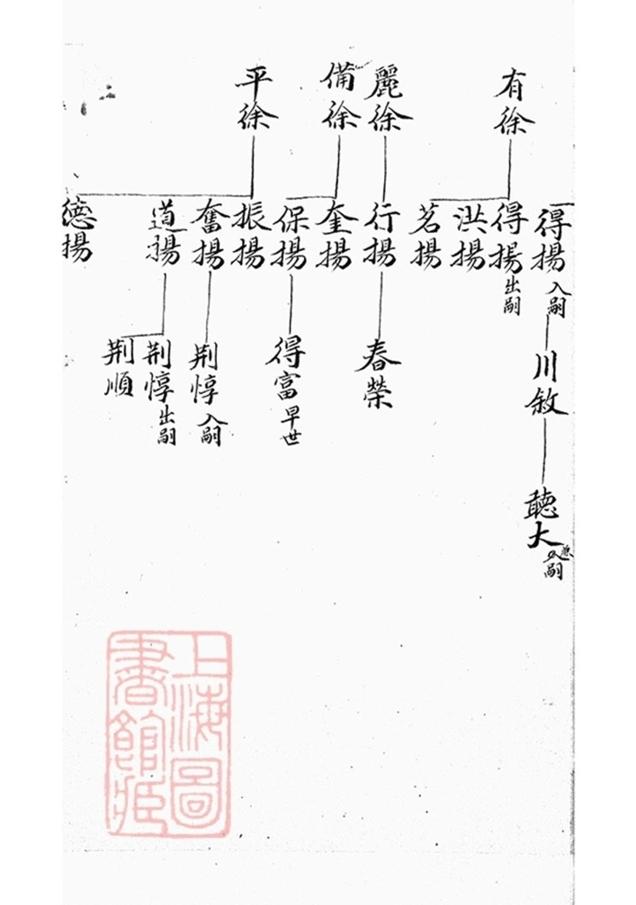 有徐
麗徐
備徐
平徐
得揚 入嗣
得揚 出嗣
洪揚
茗揚
行揚
奎揚
保揚
振揚
奮揚
道揚
德揚
川敘
春榮
得富 早世
荆惇 入嗣
荆惇 出嗣
荆順
聽大
嗣
上海圖
書館藏